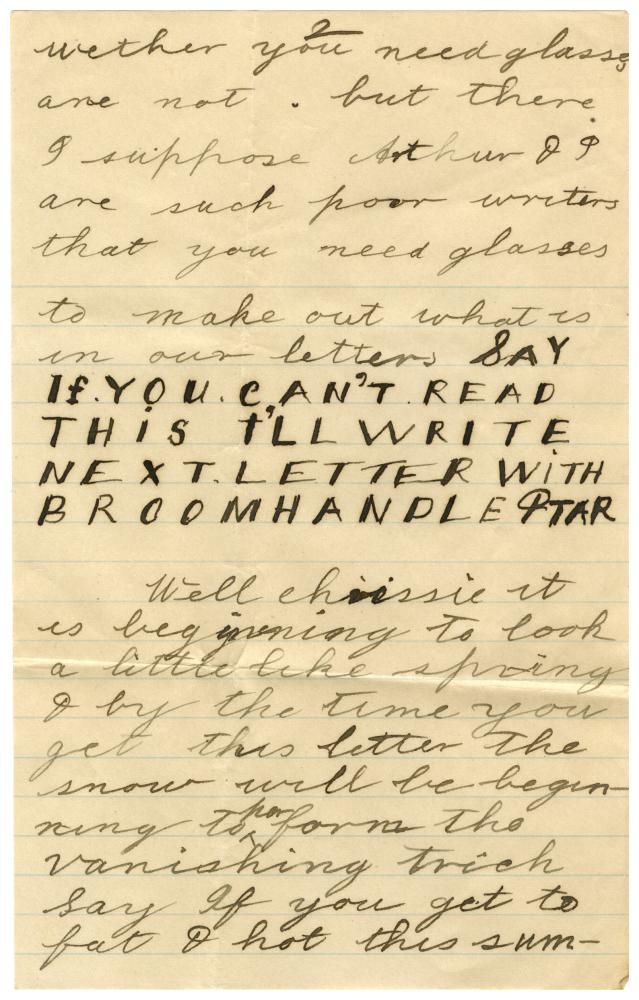 2
wether you need glasses
are not . but there
I suppose Arthur & I
are such poor writers
that you need glasses
to make out what is
in our letters SAY
If. YOU. CAN'T. READ
THIS I'LL WRITE
NEXT. LETTER WITH
BROOMHANDLE & TAR
Well chrissie it
is beginning to look
a little like spring
& by the time you
get this letter the
snow will be begin-
ning to perform the
vanishing trick
Say If you get to
fat & hot this sum-